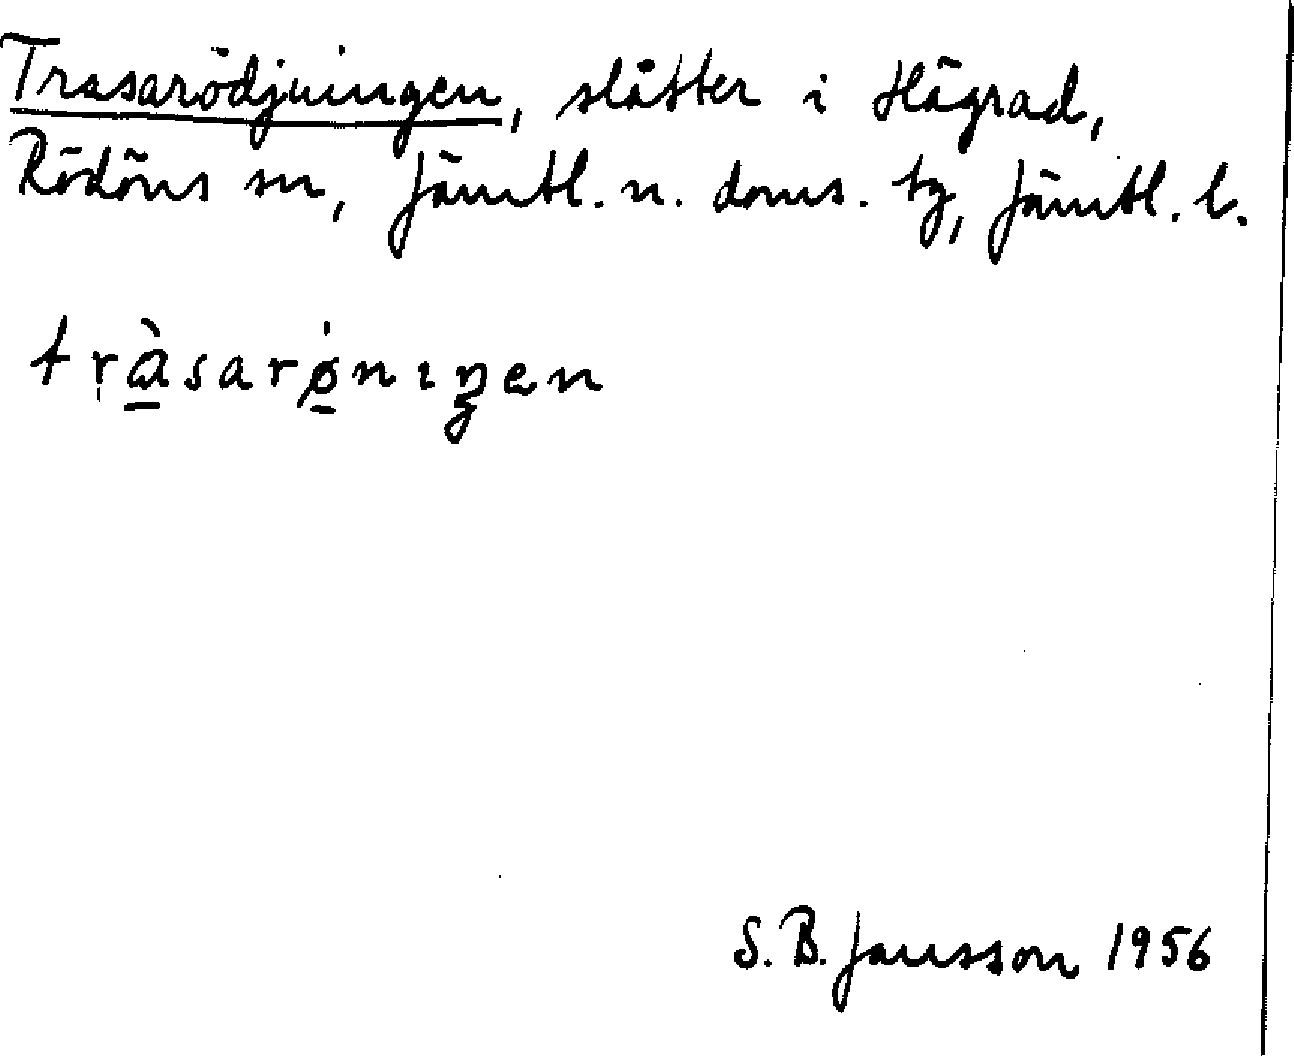 Trasarödjningen, slåtter i Hägrad,
Rödöns sn, Jämtl. n. doms. tg, Jämtl. l.
tràsarøniŋen
S. B. Jansson 1956